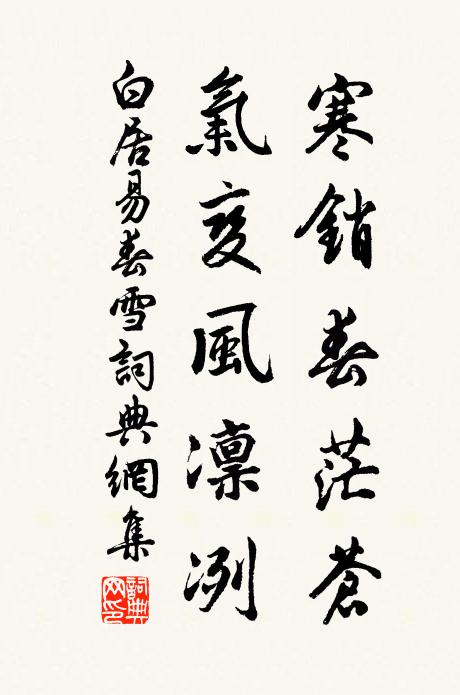 寒銷春茫蒼
氣变風凜冽
白居易春雪詞典網集
詞典网印